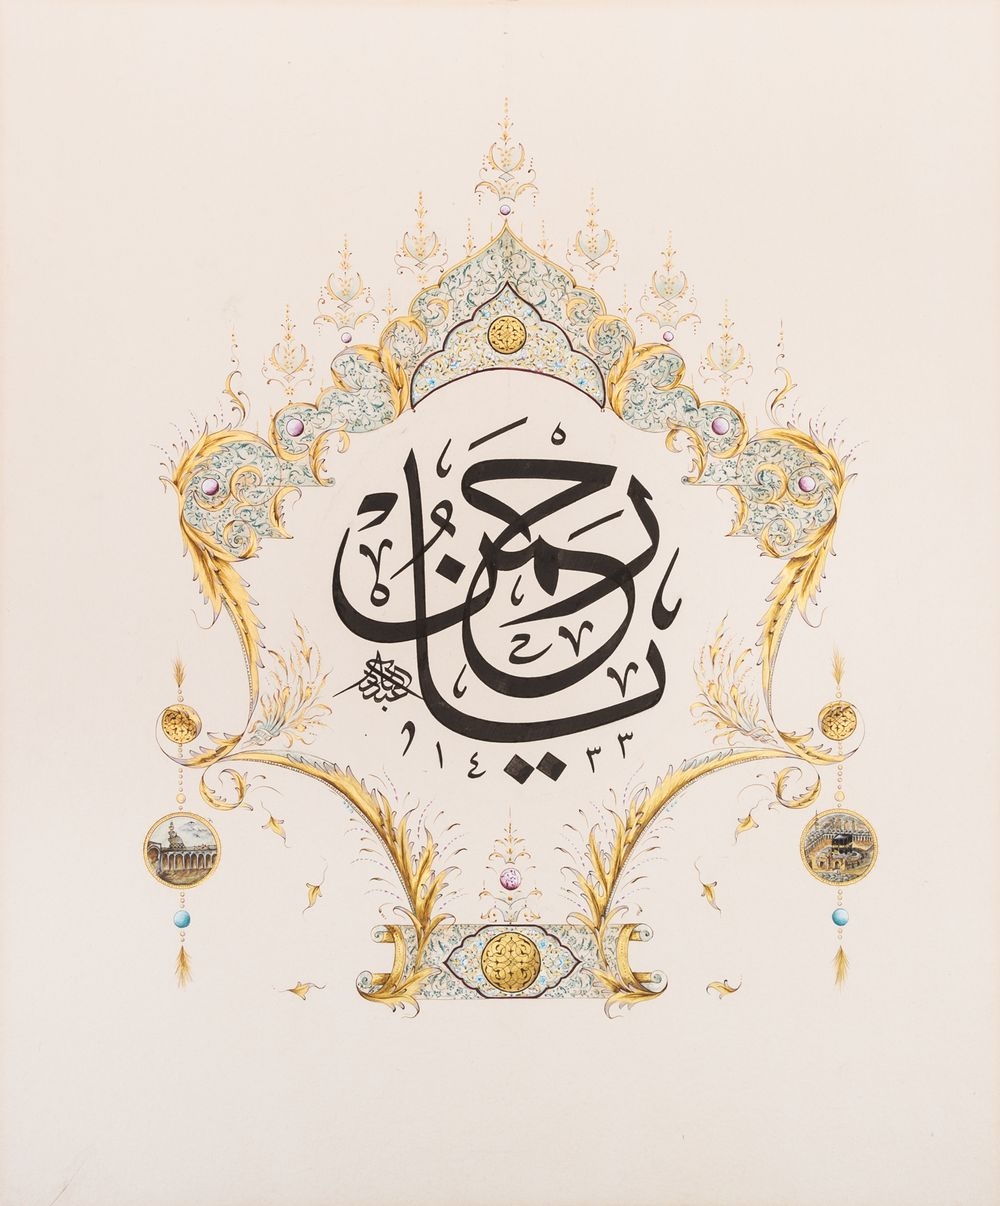 يا رحمن
١٤٣٣